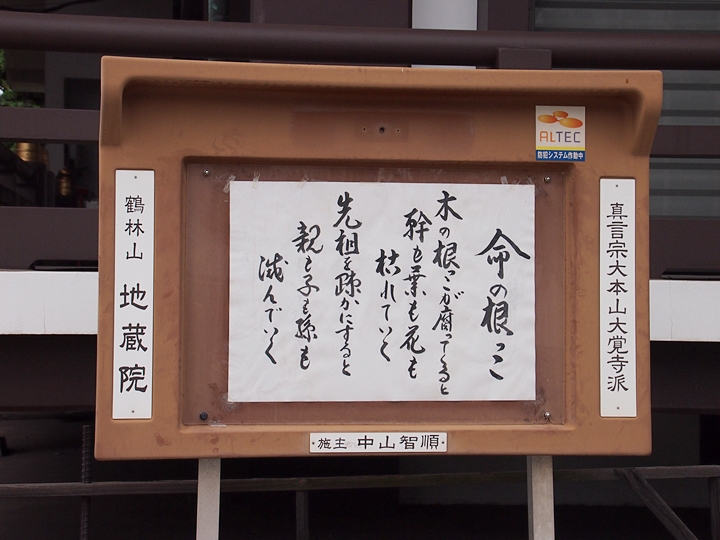 真言宗大本山大覚寺派
ALTEC
防犯システム作動中
命の根っこ
木の根っこが腐ってくると
幹も葉も花も
枯れていく
先祖を疎かにすると
親も子も孫も
滅んでいく
鶴林山 地蔵院
施主 中山智順